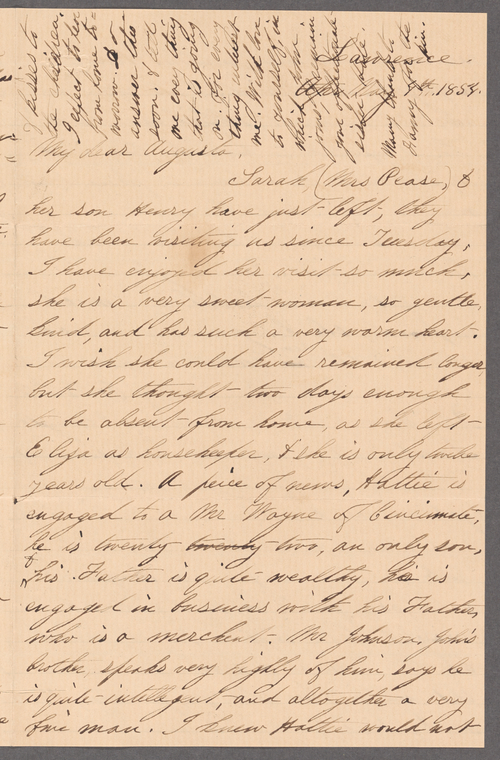 Lawrence.
8th. 1858.
My dear Augusta,
Sarah (Mrs Pease,) &
her son Henry have just left, they
have been visiting us since Tuesday,
I have enjoyed her visit so much,
she is a very sweet woman, so gentle,
kind, and has such a very warm heart.
I wish she could have remained longer
but she thought two days enough
to be absent from home, as she left
Eliza as housekeeper, & she is only twelve
years old. A peice of news, Hattie is
engaged to a Mr Wayne of Cincinnate,
he is twenty twenty two, an only son,
& his Father is quite wealthy, he is
engaged in business with his Father,
who is a merchant. Mr Johnson, John's
brother, speaks very highly of him, says he
is quite intelligent, and altogether a very
fine man. I knew Hattie would not
& kisses to
the children.
I expect to
from home to
answer this
soon. & tell
me every thing
that is going
on, for every
thing interest
me. With love
to yourself, in
which John
joins